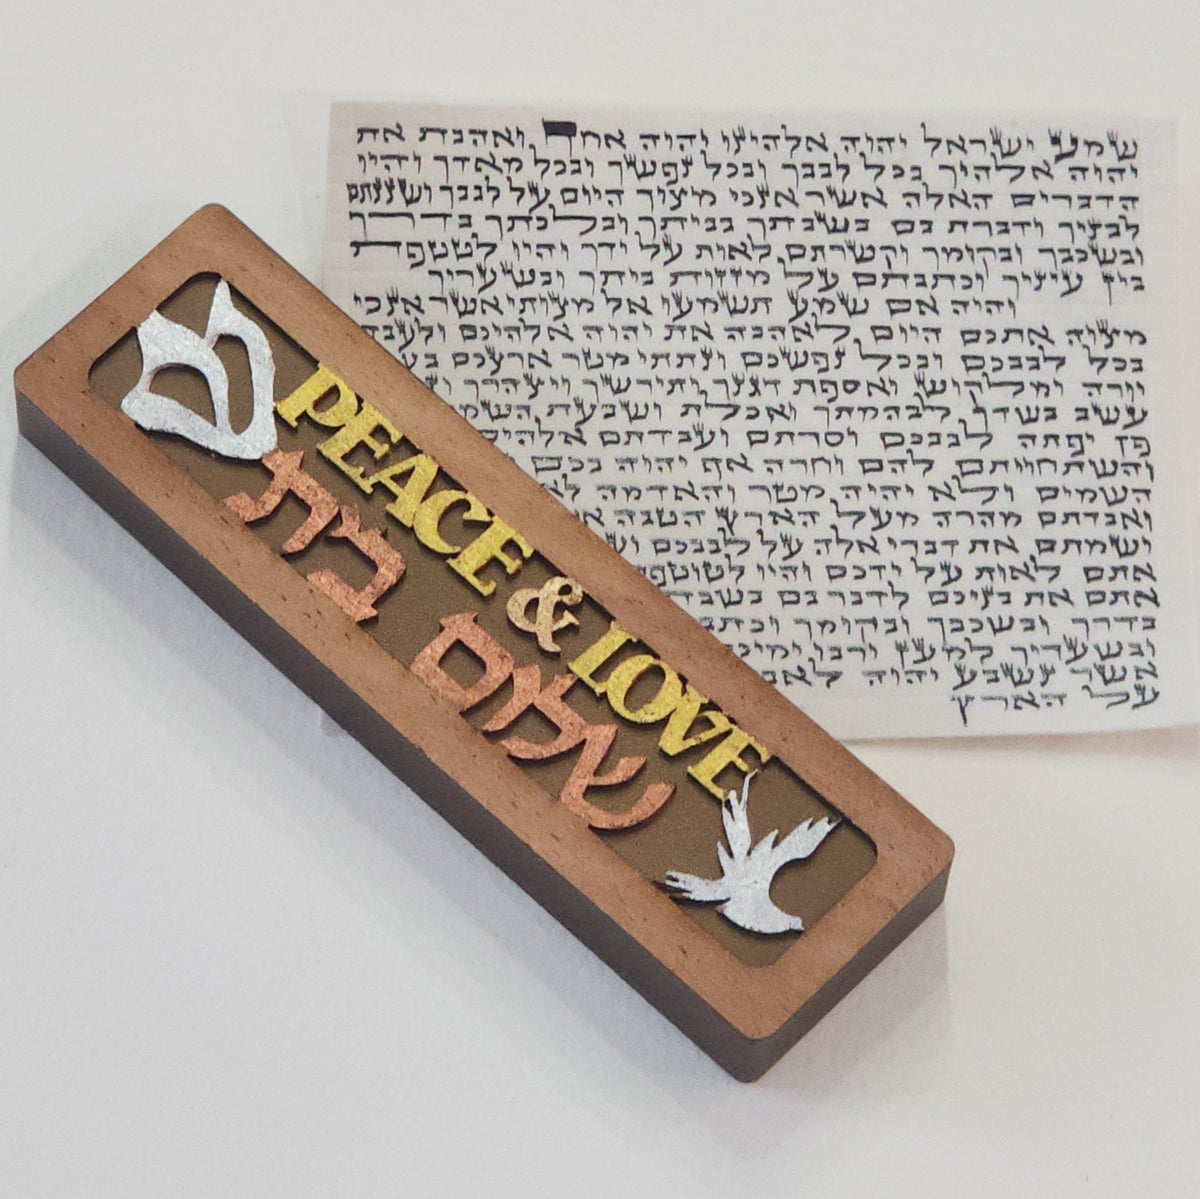 ש
PEACE & LOVE
שלום בית
שמע ישראל יהוה אלהינו יהוה אחד ואהבת את
יהוה אלהיך בכל לבבך ובכל נפשך ובכל מאדך והיו
הדברים האלה אשר אנכי מצוך היום על לבבך ושננתם
לבניך ודברת בם בשבתך בביתך ובלכתך בדרך
ובשכבך ובקומך וקשרתם לאות על ידך והיו לטטפת
בין עיניך וכתבתם על מזזות ביתך ובשעריך
והיה אם שמע תשמעו אל מצותי אשר אנכי
מצוה אתכם היום לאהבה את יהוה אלהיכם
בכל לבבכם ובכל נפשכם ונתתי מטר ארצכם
יורה ומלקוש ואספת דגנך ותירשך ויצהרך
עשב בשדך לבהמתך ואכלת ושבעת
פן יפתה לבבכם וסרתם ועבדתם
והשתחויתם להם וחרה אף יהוה בכם
השמים ולא יהיה מטר והאדמה
ואבדתם מהרה מעל הארץ הטבה
ושמתם את דברי אלה על לבבכם
אתם לאות על ידכם והיו
אתם את בניכם לדבר בם
בדרך ובשכבך ובקומך
ובשעריך למען ירבו
אשר נשבע יהוה
על הארץ